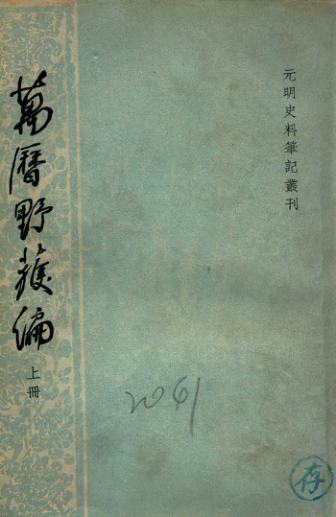 元明史料筆記叢刊
萬曆野獲編
上冊
2061
存